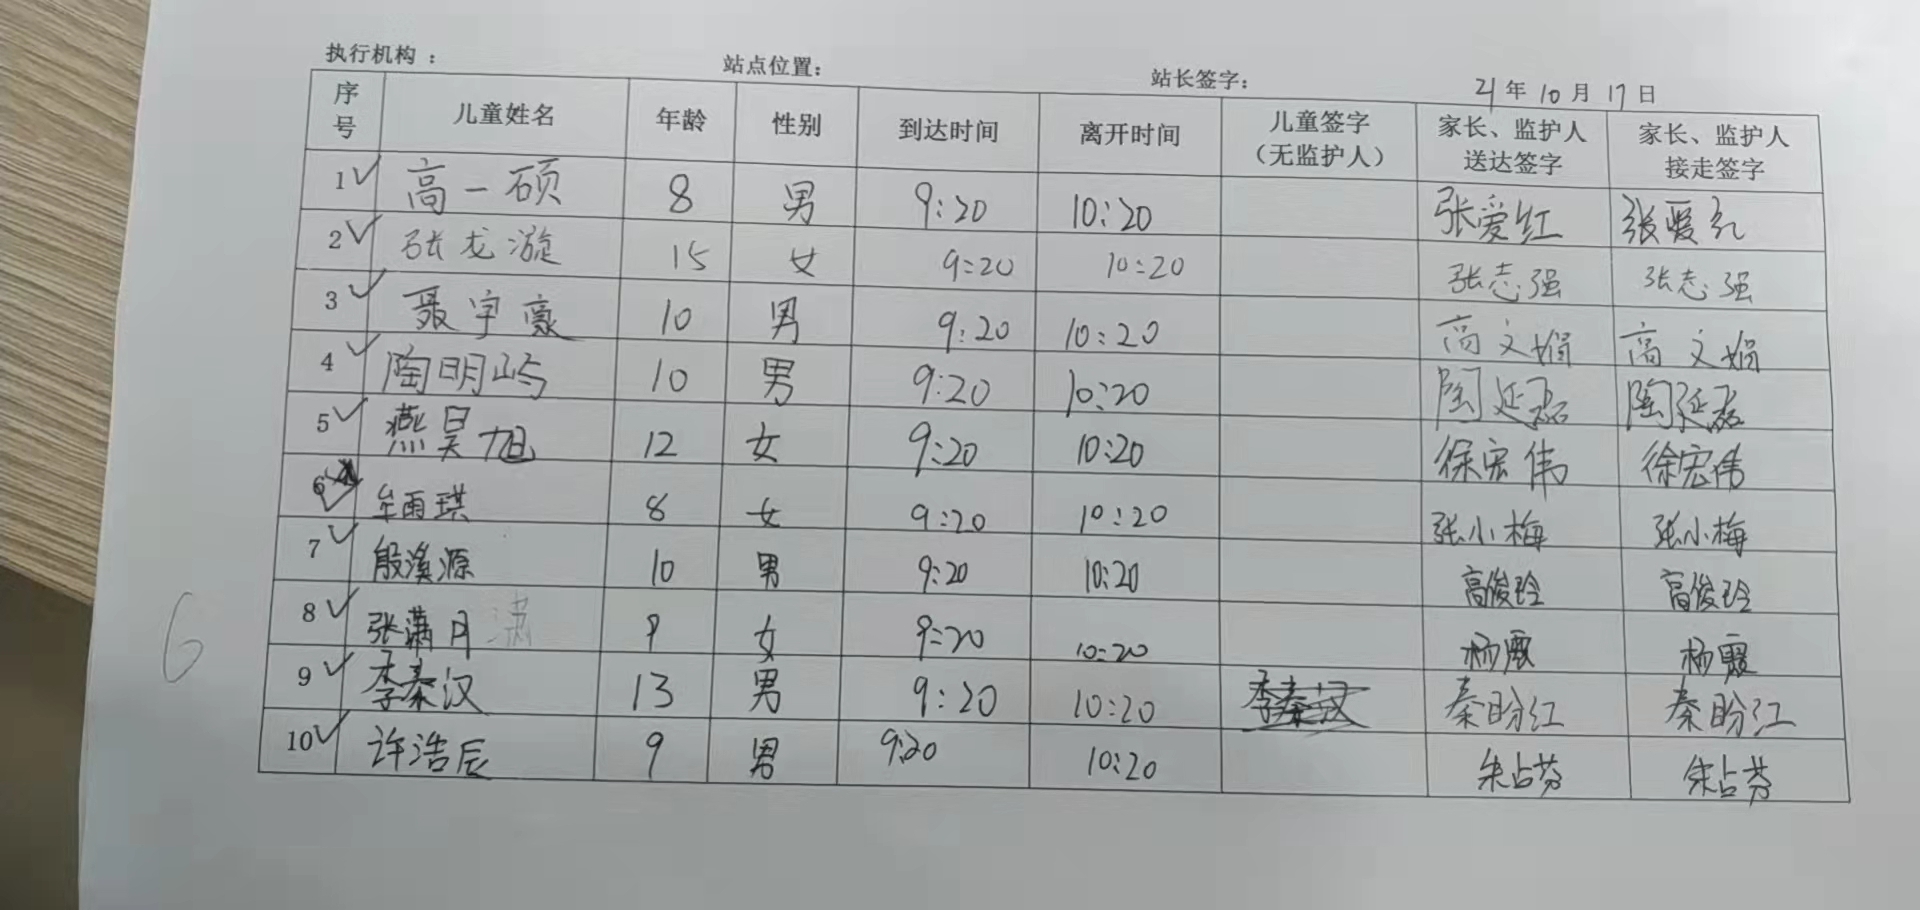 执行机构： 站点位置： 站长签字： 21年10月17日
序号 儿童姓名 年龄 性别 到达时间 离开时间 儿童签字（无监护人） 家长、监护人送达签字 家长、监护人接走签字
1 高一硕 8 男 9:20 10:20 张爱红 张爱红
2 张龙漩 15 女 9:20 10:20 张志强 张志强
3 聂宇豪 10 男 9:20 10:20 高文娟 高文娟
4 陶明屿 10 男 9:20 10:20 陶延磊 陶延磊
5 燕昊旭 12 女 9:20 10:20 徐宏伟 徐宏伟
6 牟雨琪 8 女 9:20 10:20 张小梅 张小梅
7 殷溪源 10 男 9:20 10:20 高俊玲 高俊玲
8 张潇月 潇 9 女 9:20 10:20 杨霞 杨霞
9 李秦汉 13 男 9:20 10:20 李秦汉 秦盼红 秦盼红
10 许浩辰 9 男 9:20 10:20 朱占芬 朱占芬
6